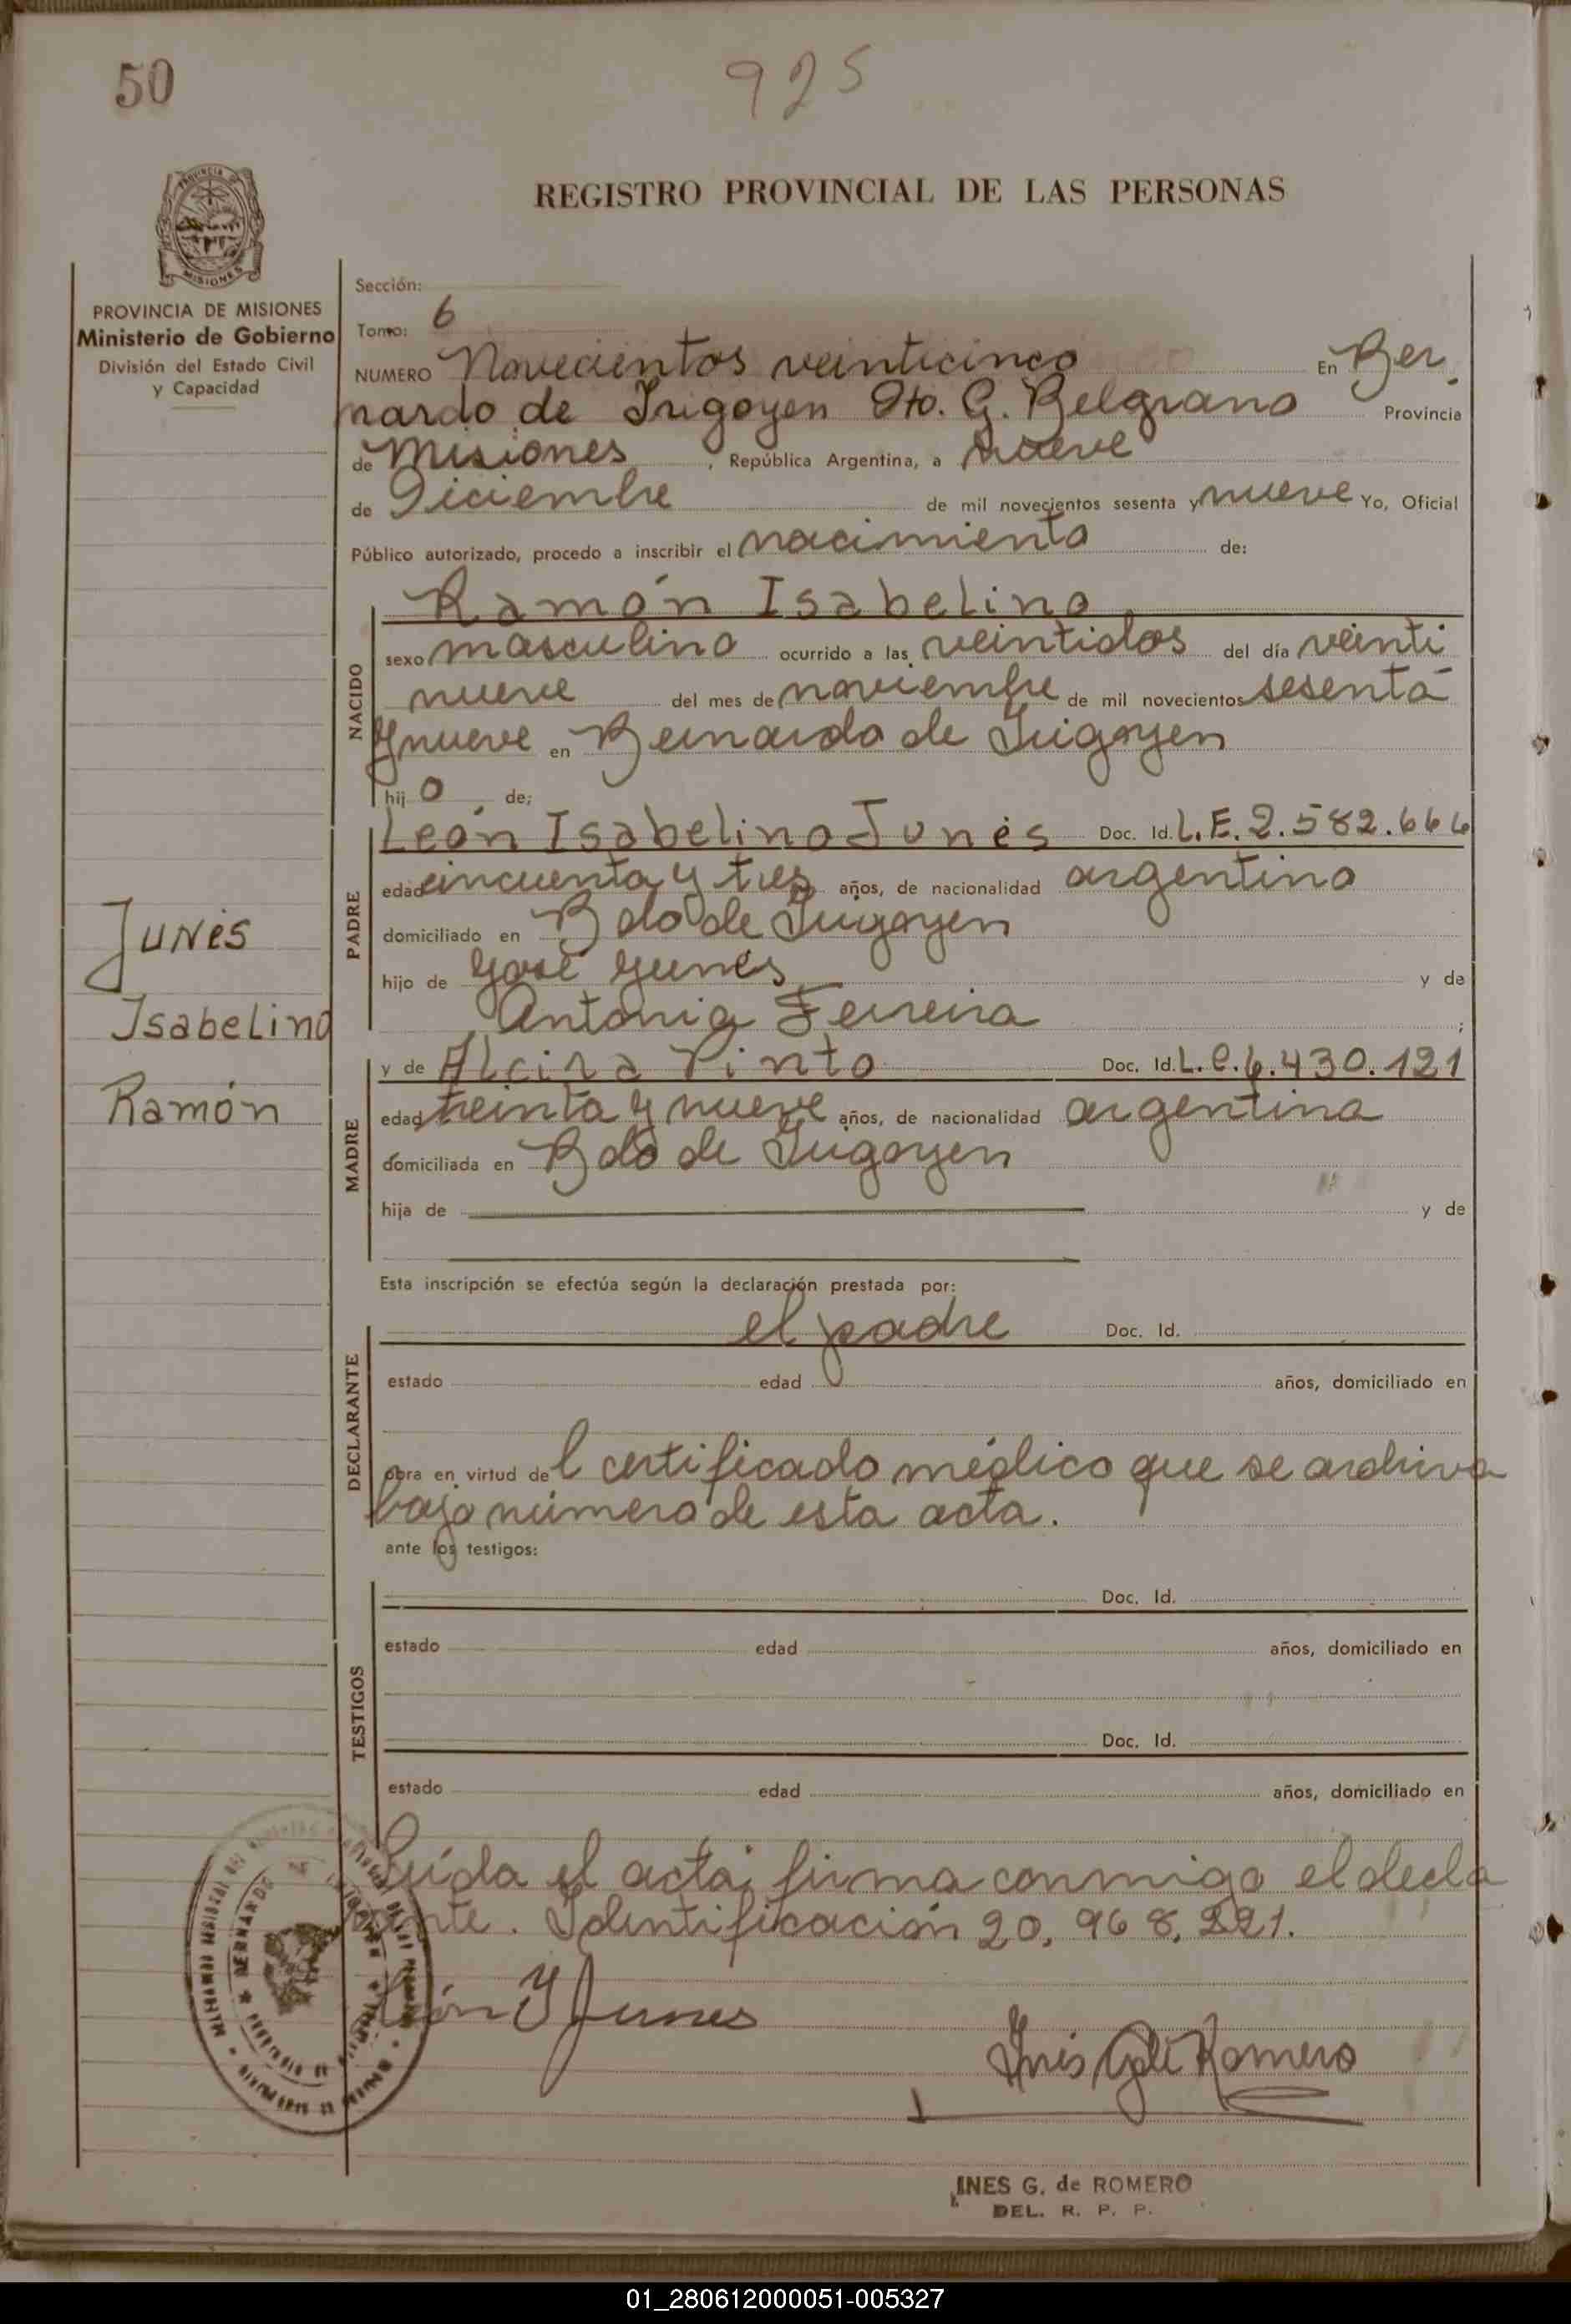 50
925
PROVINCIA DE
MISIONES
REGISTRO PROVINCIAL DE LAS PERSONAS
PROVINCIA DE MISIONES
Ministerio de Gobierno
División del Estado Civil
y Capacidad
Sección:
Tomo: 6
NUMERO Novecientos veinticinco En Ber
nardo de Irigoyen Dto. G. Belgrano Provincia
de Misiones, República Argentina, a nueve
de Diciembre de mil novecientos sesenta y nueve Yo, Oficial
Público autorizado, procedo a inscribir el nacimiento de:
NACIDO
Ramón Isabelino
sexo masculino ocurrido a las veintidos del día veinti
nueve del mes de noviembre de mil novecientos sesenta
y nueve en Bernardo de Irigoyen
hijo de;
PADRE
León Isabelino Junés Doc. Id. L.E. 2.582.666
edad cincuenta y tres años, de nacionalidad argentino
domiciliado en Bdo de Irigoyen
hijo de José Yunés y de
Antonia Ferreira ;
Junés
Isabelino
Ramón
MADRE
y de Alcira Pinto Doc. Id. L.C. 6.430.121
edad treinta y nueve años, de nacionalidad argentina
domiciliada en Bdo de Irigoyen
hija de y de
Esta inscripción se efectúa según la declaración prestada por:
DECLARANTE
el padre Doc. Id.
estado edad años, domiciliado en
obra en virtud del certificado médico que se archiva
bajo número de esta acta.
ante los testigos:
TESTIGOS
Doc. Id.
estado edad años, domiciliado en
Doc. Id.
estado edad años, domiciliado en
Leída el acta, firma conmigo el decla
rante. Identificación 20.968.221.
León Y Junes
Inés G de Romero
INES G. de ROMERO
DEL. R. P. P.
01_280612000051-005327